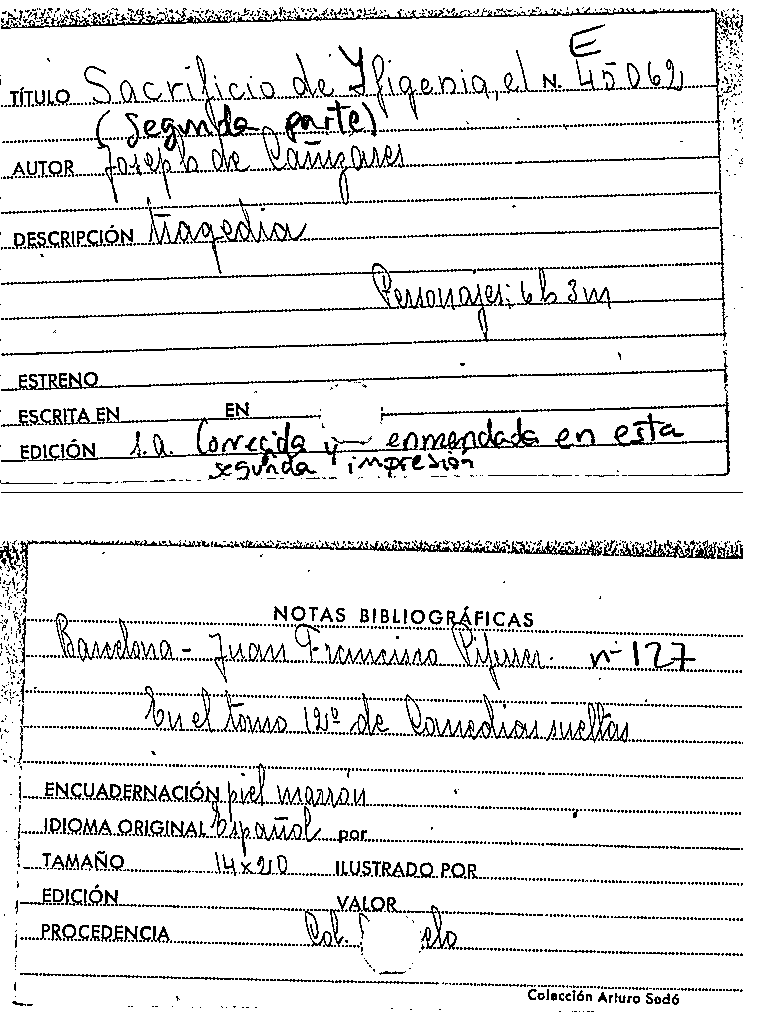 E
TÍTULO Sacrificio de Yfigenia, el N. 45062
(Segunda parte)
AUTOR Joseph de Cañizares
DESCRIPCIÓN tragedia
Personajes: 6 h 3 m
ESTRENO
ESCRITA EN EN
EDICIÓN s.a. Corregida y enmendada en esta
segunda impresión
NOTAS BIBLIOGRÁFICAS
Barcelona - Juan Francisco Piferrer. nº 127
En el tomo 12º de Comedias sueltas
ENCUADERNACIÓN piel marrón
IDIOMA ORIGINAL Español por
TAMAÑO 14x20 ILUSTRADO POR
EDICIÓN VALOR
PROCEDENCIA Col.
Colección Arturo Sedó